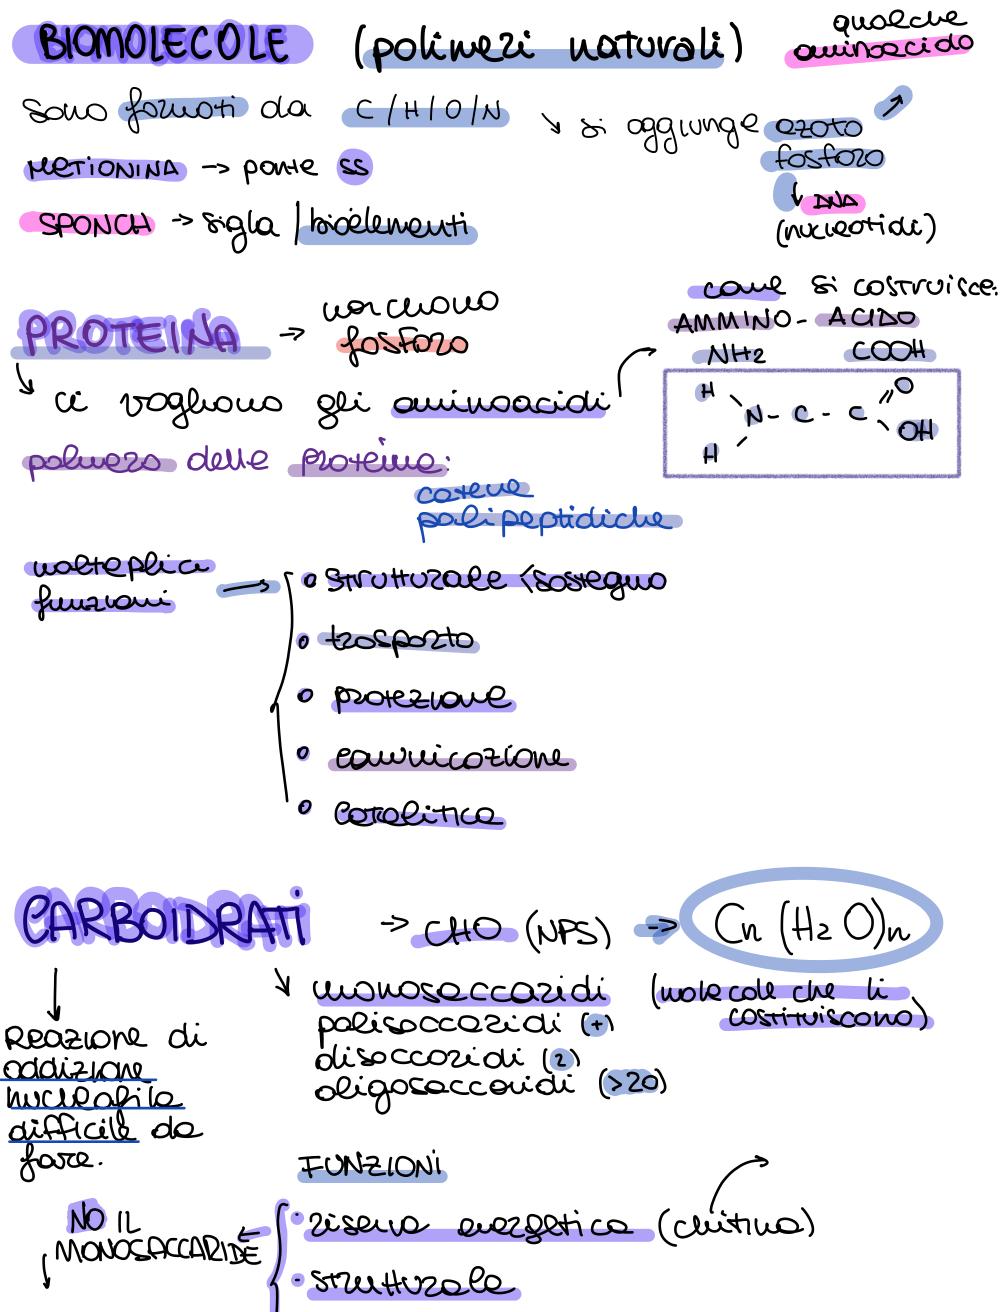 BIOMOLECOLE (polimeri naturali)
qualche
aminoacido
Sono formati da C/H/O/N
↘ si aggiunge azoto
fosforo
METIONINA → ponte SS
↓ DNA
(nucleotidi)
SPONCH → sigla / bioelementi
PROTEINA → non c'hanno
fosforo
come si costruisce:
AMMINO - ACIDO
NH2 COOH
H
N - C - C
O
OH
H
ci vogliono gli aminoacidi
polimero delle proteine:
catene
polipeptidiche
molteplici
funzioni
• strutturale / sostegno
• trasporto
• protezione
• comunicazione
• catalitica
CARBOIDRATI → CHO (NPS) → Cn (H2O)n
monosaccaridi (molecole che li
costituiscono)
polisaccaridi (+)
disaccaridi (2)
oligosaccaridi (>20)
Reazione di
addizione
nucleofila
difficile da
fare.
FUNZIONI
• riserva energetica (chitina)
• strutturale
NO IL
MONOSACCARIDE